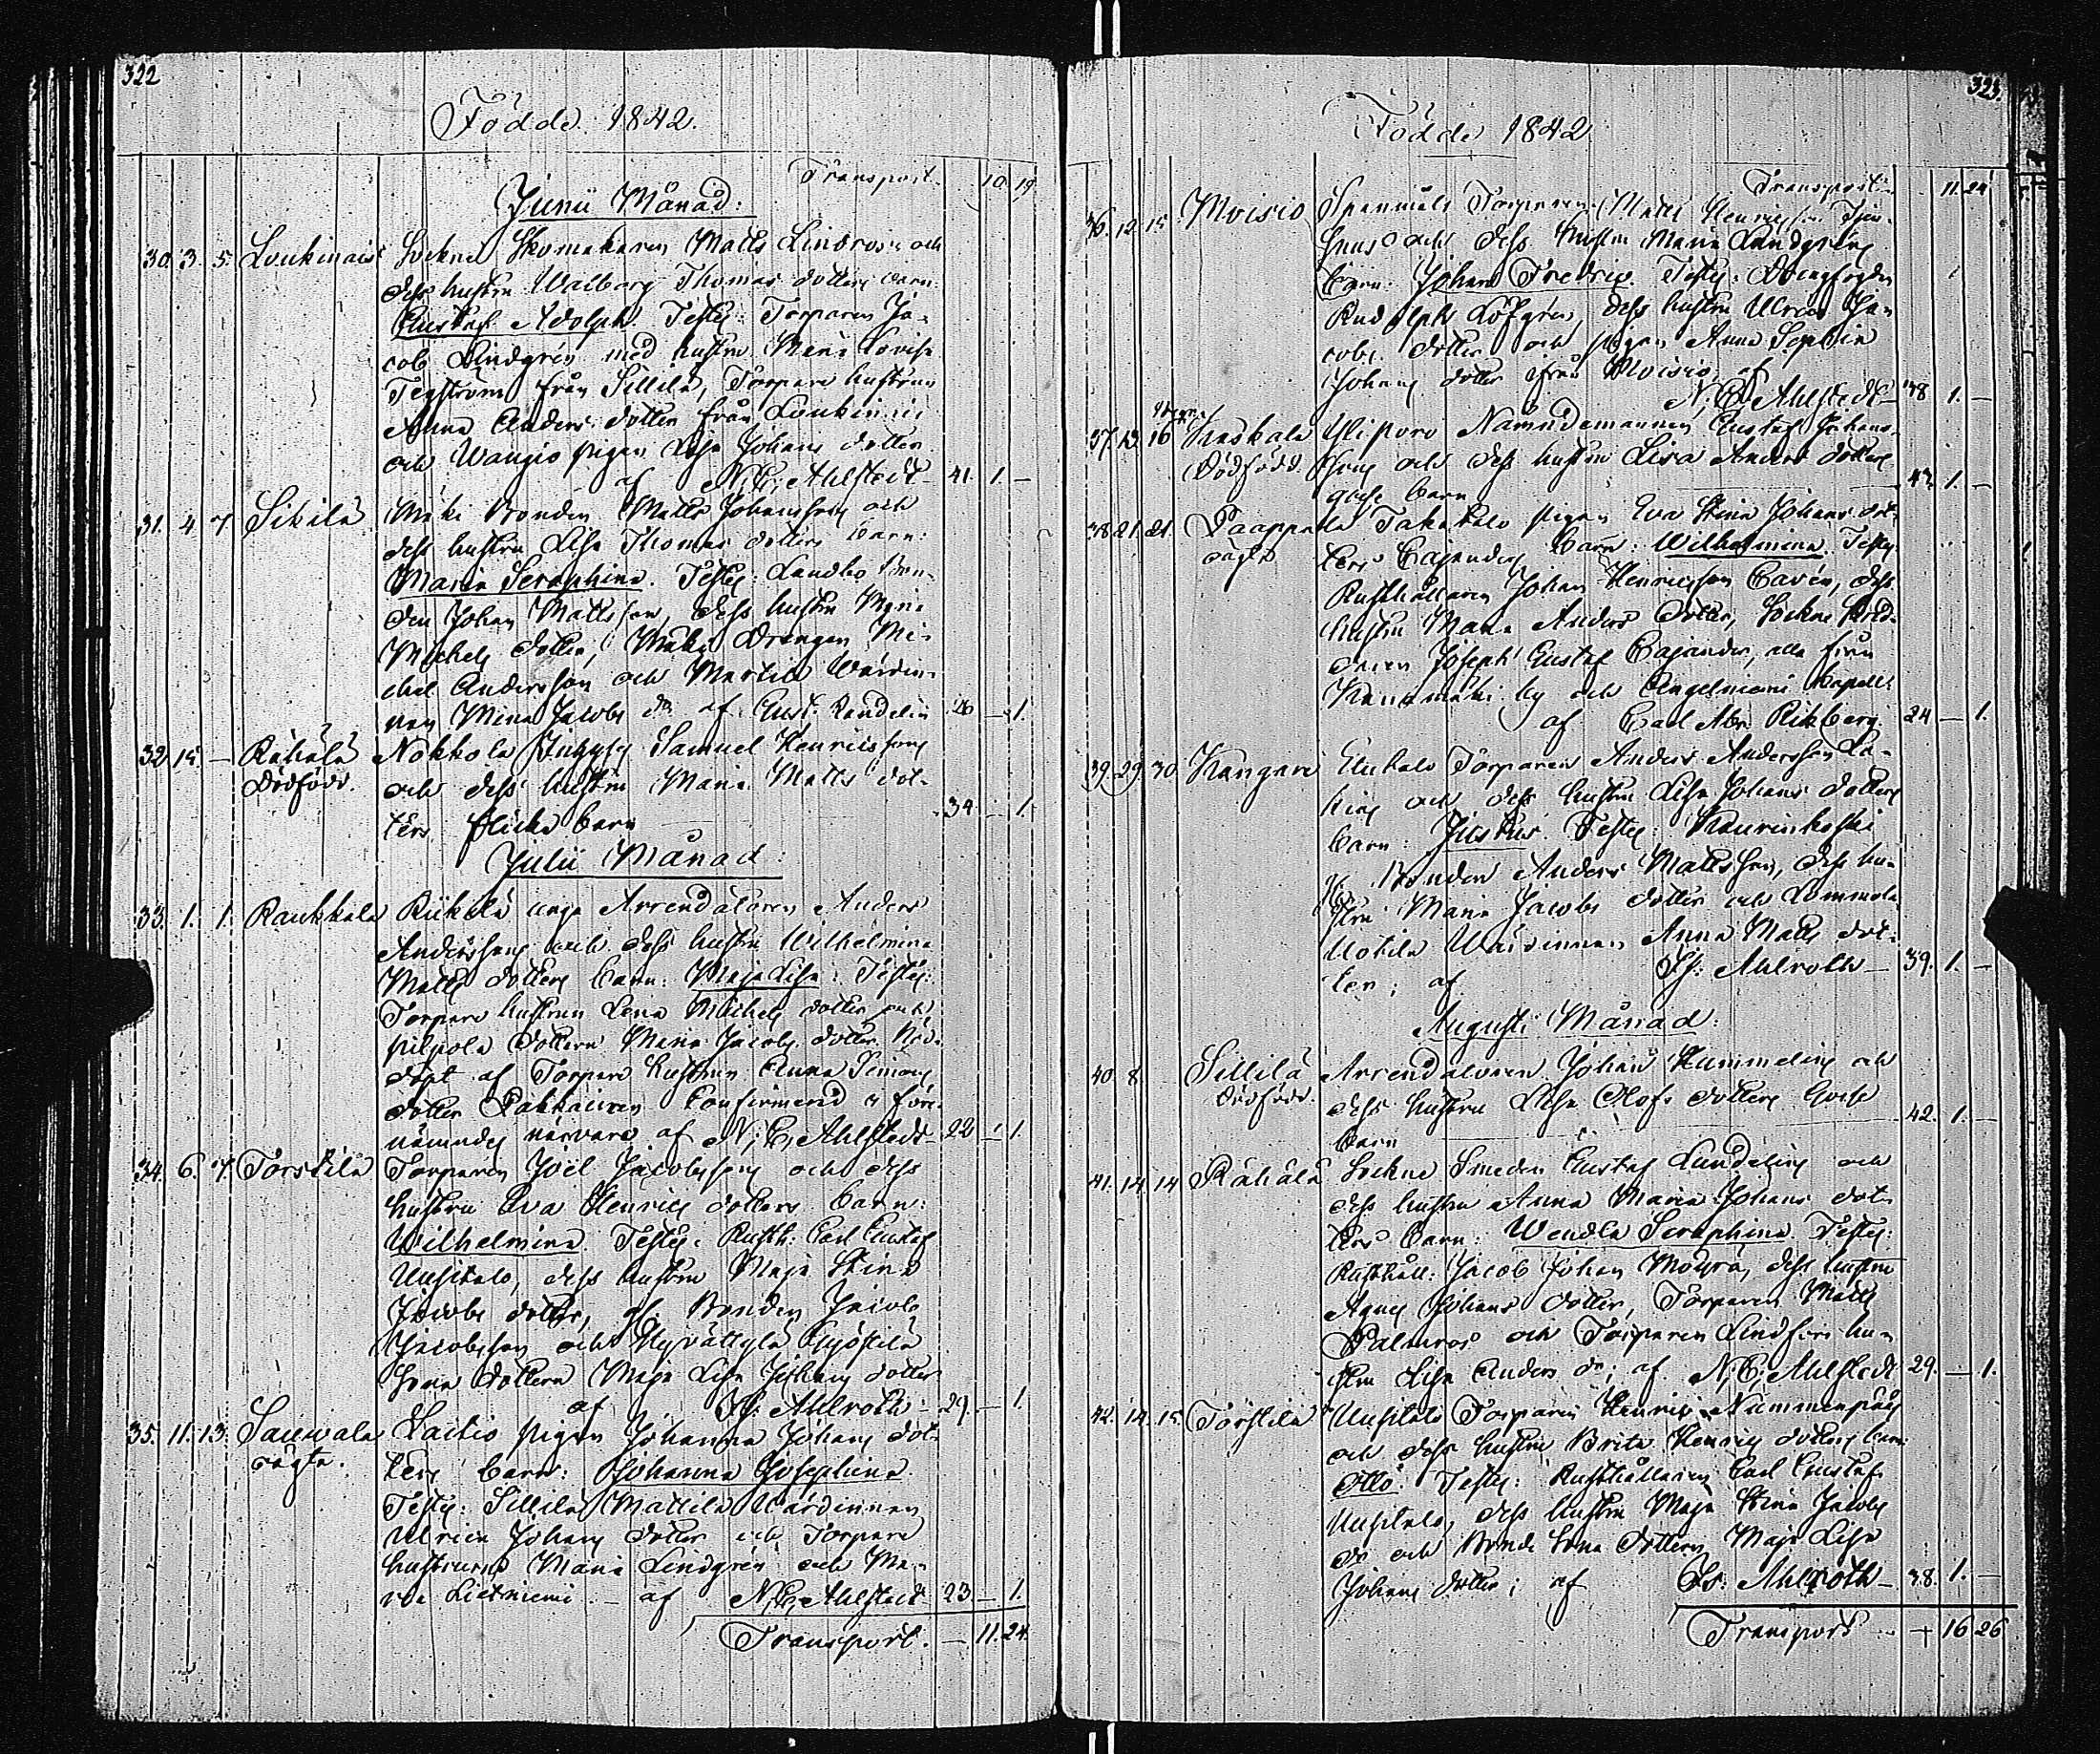 322
Födde 1842.
Transport. 10. 19.
Junii Månad:
30. 3. 5. Loukinais Sockne Skomakaren Matts Lindroos och
dess hustru Walborg Thomas dotters barn:
Gustaf Adolph. Testes: Torparen Ja-
cob Lindgrén med hustru Maria Lovisa
Tegström från Sillilä, Torpare hustrun
Anna Anders dotter från Loukinais
och Wangio pigan Lisa Johans dotter
af N. E. Ahlstedt 41. 1. –
31. 4. 7. Sikilä Mäki Bonden Matts Johansson och
dess hustru Lisa Thomas dotters barn:
Maria Seraphina. Testes: Landbo bon-
den Johan Mattsson, dess hustru Maria
Michels dotter, Mäki Drengen Mi-
chel Andersson och Martila Wärdin-
nan Mina Jacobs dr af Gust. Randelin 26 – 1.
32. 15. – Rähälä Nokkola Inhyses Samuel Henricssons
Dödfödd. och dess hustru Maria Matts dot-
ters flicke barn 34. – 1.
Julii Månad:
33. 1. 1. Raukkala Riikilä unga Arrendatoren Anders
Anderssons och dess hustru Wilhelmina
Matts dotters barn: Maja Lisa. Testes:
Torpare hustrun Lena Michels dotter och
Pilpola dottern Maria Jacobs dotter. Nöd-
döpt af Torpare hustrun Anna Simons
dotter Confirmerad i före-
nämndes närvaro af N. E. Ahlstedt 22 – 1.
34. 6. 7. Torstila Torparen Joël Jacobssons och dess
hustru Eva Henrics dotters barn:
Wilhelmina. Testes: Rusth. Carl Gustaf
Uusitalo, dess hustru Maja Stina
Jacobs dotter, Bonden Jacob
Jacobsson och Hyvättylä
Sona dottern Maja Lisa Johans dotter
af Is. Ahlroth 29. – 1.
35. 11. 13. Sauwala Laitio pigan Johanna Johans dot-
oägta. ters barn: Johanna Josephina.
Testes: Sillilä Mattila Wärdinnan
Ulrica Johans dotter och Torpare
hustrurna Maria Lindgrén och Ma-
ria Lietniemi – af N. E. Ahlstedt 23 – 1.
Transport. – 11. 24.
323.
Födde 1842
Transport. 11. 24
36. 12. 15 Moisio Spanmåls Torparen Matts Henricsson
och dess hustru Maria Lundgréns
barn: Johan Fredric. Testes: Drengfogden
Rudolph Löfgrén, dess hustru Ulrica Ja-
cobs dotter och pigan Anna Sophia
Johans dotter från Moisio, af
N. E. Ahlstedt 38 1. –
37. 13. 16 Kaskala Yliporo Nämndemannen Gustaf Johans-
Dödfödd. sons och dess hustru Lisa Anders dotters
gosse barn 43. 1. –
38. 21. 21. Paappala Takatalo pigan Eva Stina Johans dot-
oägta ters Cajanders barn: Wilhelmina. Testes:
Rusthållaren Johan Henricsson Cavén, dess
hustru Maria Anders dotter, Sockne Skrä-
daren Joseph Gustaf Cajander, alla från
by och Angelniemi Capell:
af Carl Abr. Rikberg. 24 – 1.
39. 29. 30. Kangare Torparen Anders Andersson La-
och dess hustru Lisa Johans dotters
barn: Justus. Testes:
Bonden Anders Mattsson, dess hu-
stru Maria Jacobs dotter och Lammala
Uotila Wärdinnan Anna Matts dot-
ter; af Is: Ahlroth – 39. 1. –
Augusti Månad:
40. 8. Sillilä Arrendatoren Johan Hummelins och
Dödfödd. dess hustru Lisa Olofs dotters gosse
barn 42. 1. –
41. 14. 14 Rähälä Sockne Smeden Gustaf Lundelins och
dess hustru Anna Maria Johans dot-
ters barn: Wendla Seraphina. Testes:
Rusthåll: Jacob Johan Moisra, dess hustru
Agnes Johans dotter, Torparen Matts
Palmroos och Torparen Lindfors hu-
stru Lisa Anders dr; af N. E. Ahlstedt 29. – 1.
42. 14. 15. Torstila Uusitalo Torparen Henric Nummenpääs
och dess hustru Brita Henrics dotters barn:
Otto. Testes: Rusthållaren Carl Gustaf
Uusitalo, dess hustru Maja Stina Jacobs
dr och Bonde Sona Dottern Maja Lisa
Johans dotter; af Is: Ahlroth – 38. 1. –
Transport – 16 26